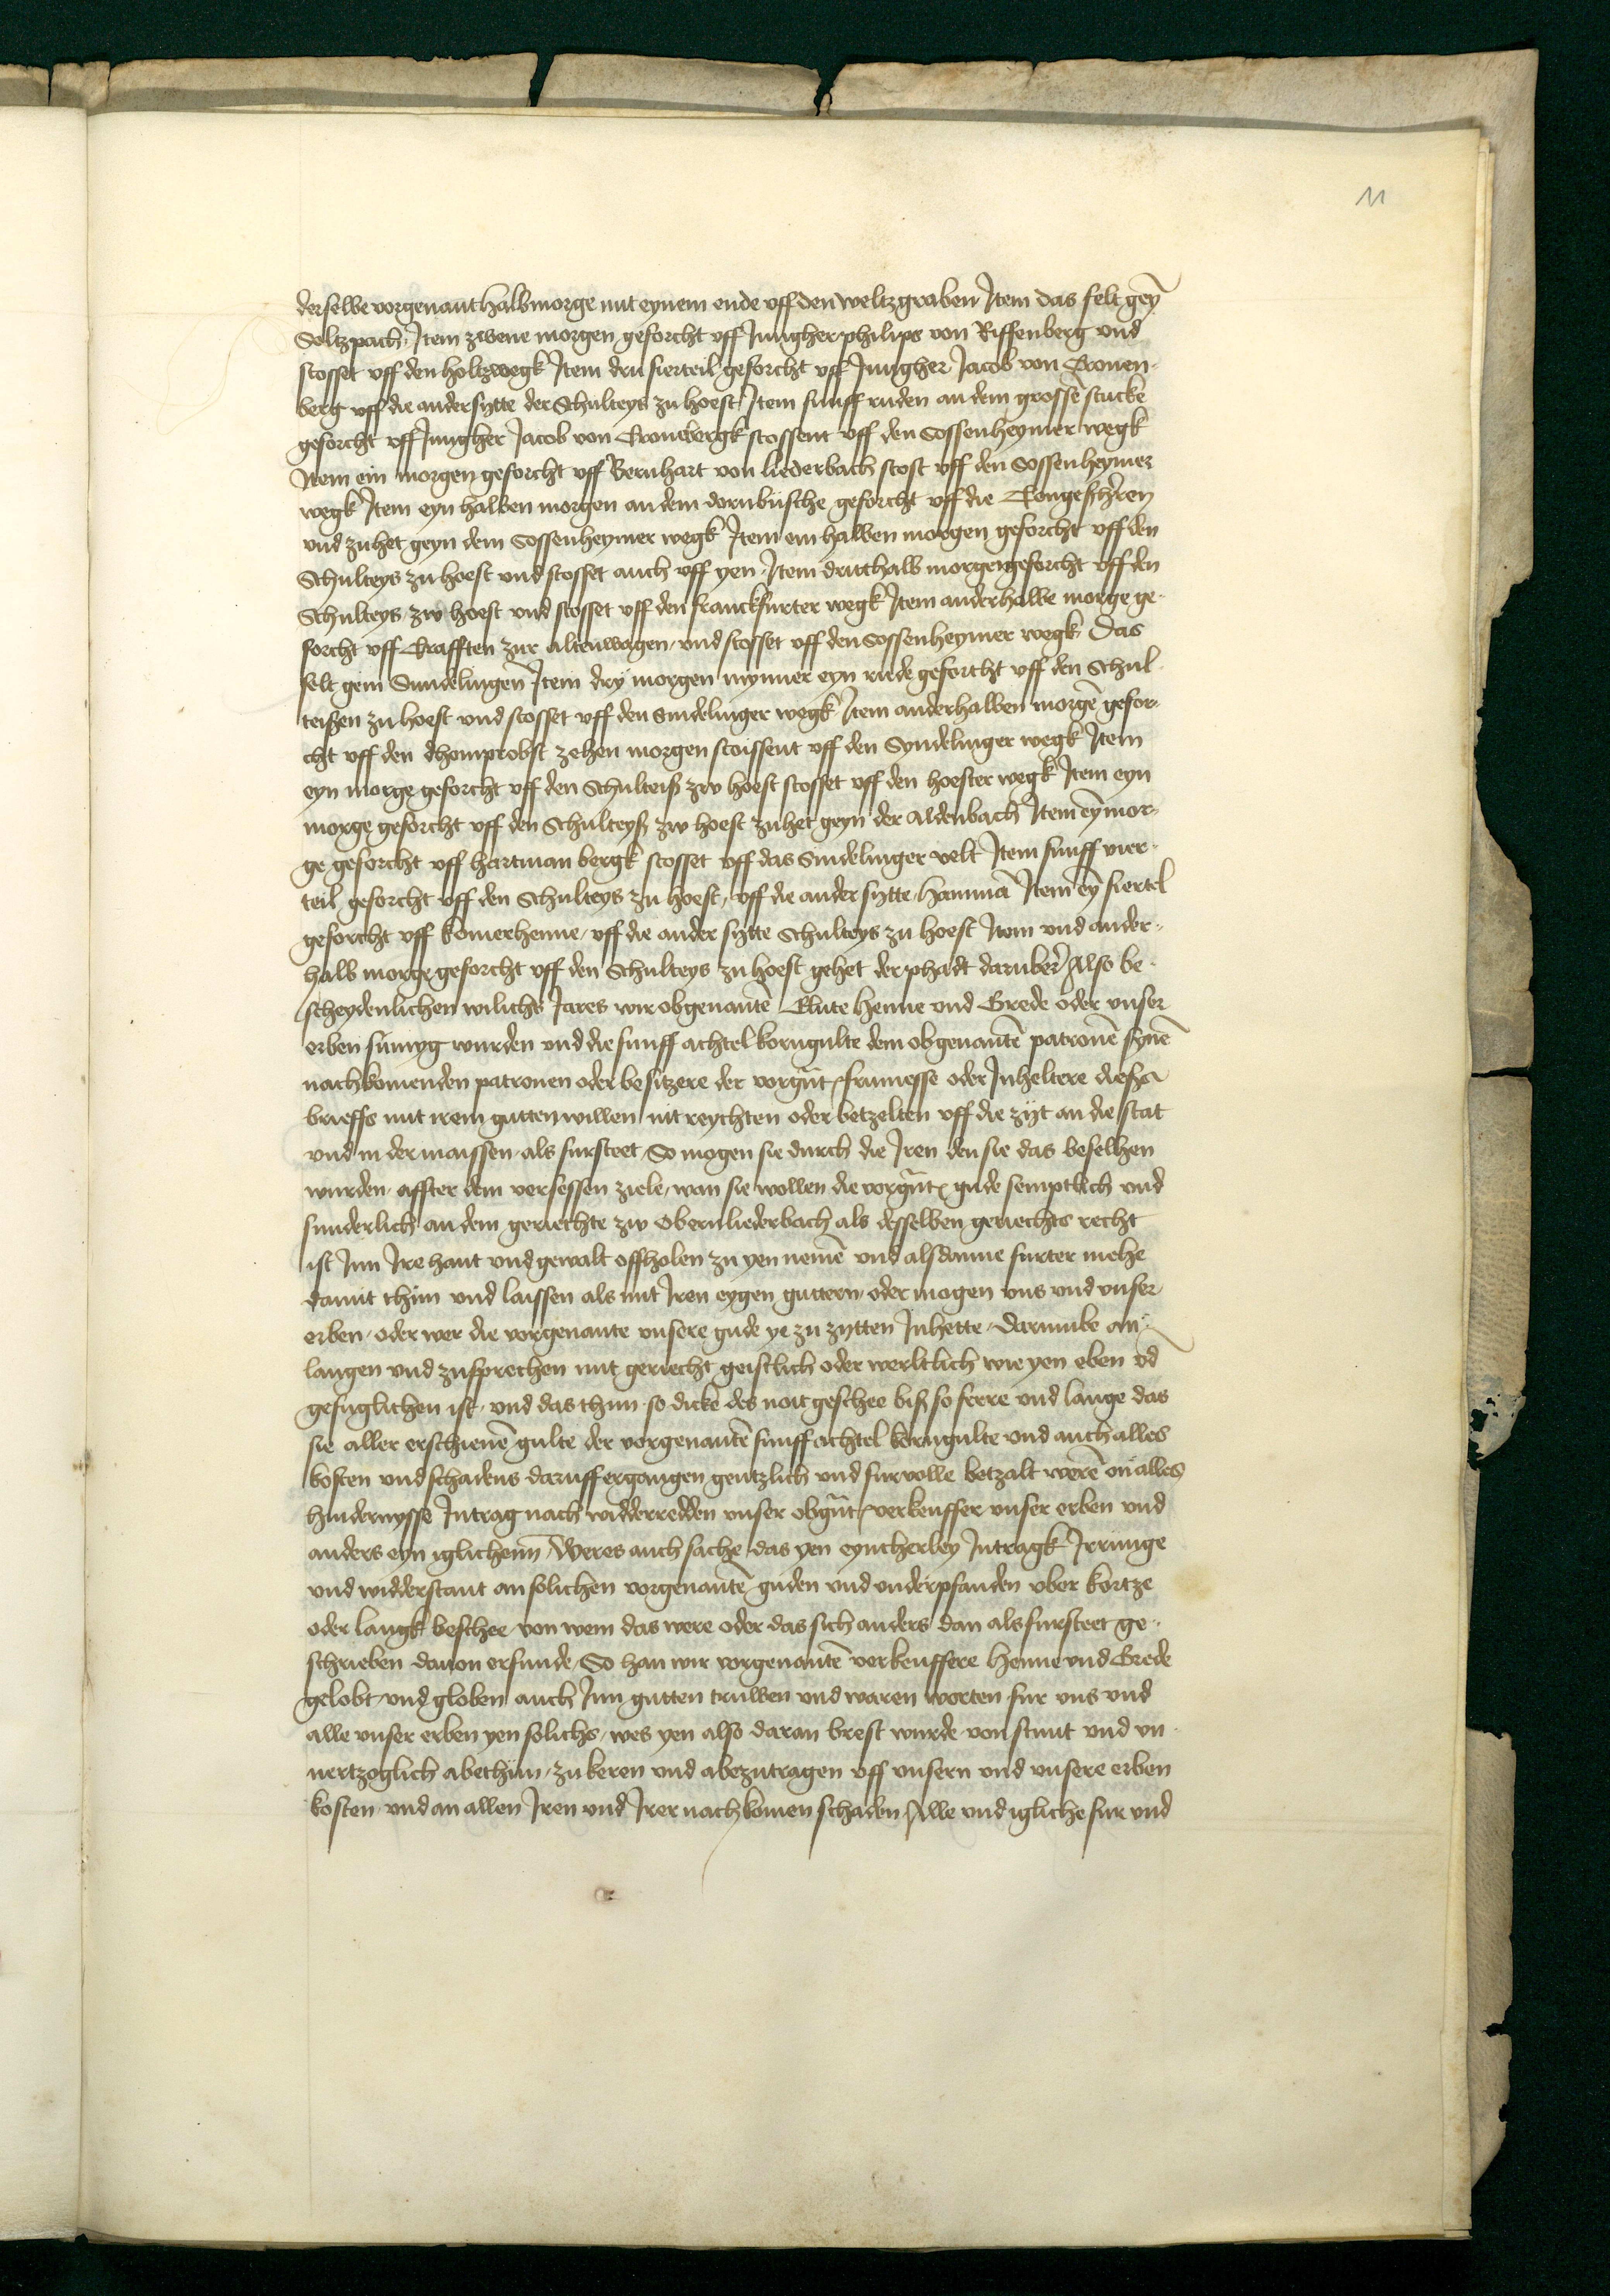 11
derselbe vorgenant halbmorge mit eynem ende uff den weltzgraben Item das felt geȳ
Soltzpach Item zwene morgen geforcht uff Jungher philips von Riffenberg und
stosset uff den holtzwegk Item dru fierteil geforcht uff Jungher Jacob von Cronen-
berg uff die andersytte der Schulteys zu hoest Item funff ruden an dem grossē stucke
geforcht uff Jungher Jacob von Cronēbergk stossent uff den Sossenheymer wegk
Item ein morgen geforcht uff Bernhart von liederbach stost uff den Sossenheymer
wegk Item eyn halben morgen an dem dornbusche geforcht uff die
und zuhet geyn dem Sossenheymer wegk Item ein halben morgen geforcht uff den
Schulteys zu hoest und stosset auch uff yen Item dritthalb morgen geforcht uff den
Schulteys zw hoest und stosset uff den franckfurter wegk Item anderhalbe morge ge-
forcht uff Crafften zur altenwagen und stosset uff den Sossenheymer wegk Das
felt gein Sundelingen Item dry morgen mynner eyn rude geforcht uff den Schul-
teißen zu hoest und stosset uff den Sindelinger wegk Item anderhalben morgē gefor-
cht uff den dhomprobst zehen morgen stoissent uff den Syndelinger wegk Item
eyn morge geforcht uff den Schulteiß zw hoest stosset uff den hoester wegk Item eyn
morge geforcht uff den Schulteyß zw hoest zuhet geyn der Aldenbach Item eȳ mor-
ge geforcht uff hartman bergk stosset uff das Sindelinger velt Item funff vier-
teil geforcht uff den Schulteys zu hoest, uff die ander sytte hammā Item eȳ fiertel
geforcht uff komerhenne, uff die ander sytte Schulteys zu hoest Item und ander-
halb morge geforcht uff den Schulteys zu hoest gehet der phadt daruber Also be-
scheydenlichen wilichs Jares wir obgenantē Clute Henne und Grede oder unser
erben sumyg wurden und die funff achtel korngulte dem obgenantē patronē synē
nachkomenden patronen oder besitzere der vorgnt frumesse oder Inheltere dießs
brieffs mit irem gutten willen nit reychten oder betzelten uff die zyt an die stat
und in der maissen als fursteet So mogen sie durch die Iren den sie das befelhen
wurden affter dem versessen ziele, wan sie wollen die vorgnt gude semptlich und
sunderlich an dem geriechte zw Obernliederbach als desselben geriechts recht
ist Inn Ire hant und gewalt offholen zu yen nemē und alsdanne furter mehe
damit thun und laissen als mit Iren eygen guttern, oder mogen uns und unser
erben, oder wer die vorgenante unsere gude ye zu zytten Inhette, darumbe an-
langen und zusprechen mit geriecht geistlich oder werltlich wie yen eben vd
gefuglichen ist, und das thun so dicke des noit geschee biß so ferre und lange das
sie aller erschienē gulte der vorgenantē funff achtel korngulte und auch alles
kosten und schadens daruff ergangen gentzlich und furvolle betzalt werē on alles
hindernysse Intrag nach widderredden unser obgnt verkeuffer unser erben und
anders eyn iglichenn, Weres auch sache das yen eyncherley Intragk Irrunge
und widderstant an solichen vorgenantē guden und underpfanden uber kortze
oder langk beschee von wem das were oder das sich anders dan als fursteet ge-
schrieben davon erfunde, So han wir vorgenantē verkeuffere Henne und Grede
gelobt, und globen auch Inn gutten truwen und waren worten fur uns und
alle unser erben yen solichs, wes yen also daran brest wurde von stunt und un-
vertzoglich abethun, zu keren und abezutragen uff unsern und unsere erben
kosten und an allen Iren und Irer nachkomen schaden Alle und igliche fur und